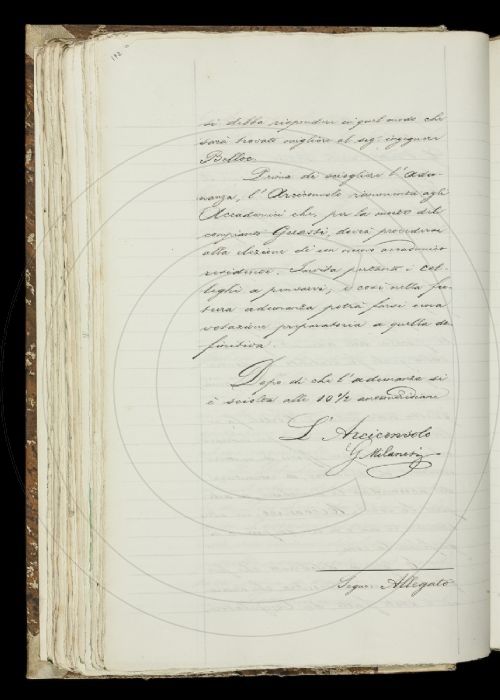 192
si debba rispondere in quel modo che
sarà trovato migliore al sig. ingegnere
Belloc.
Prima di sciogliere l'adu-
nanza, l'Arciconsolo rammenta agli
Accademici che, per la morte del
compianto Guasti, dovrà procedersi
alla elezione di un nuovo accademico
residente. Invita pertanto i col-
leghi a pensarvi, e così nella fu-
tura adunanza potrà farsi una
votazione preparatoria a quella de-
finitiva.
Dopo di che l'adunanza si
è sciolta alle 10 1/2 antimeridiane
L'Arciconsolo
G Milanesi
Segue Allegato